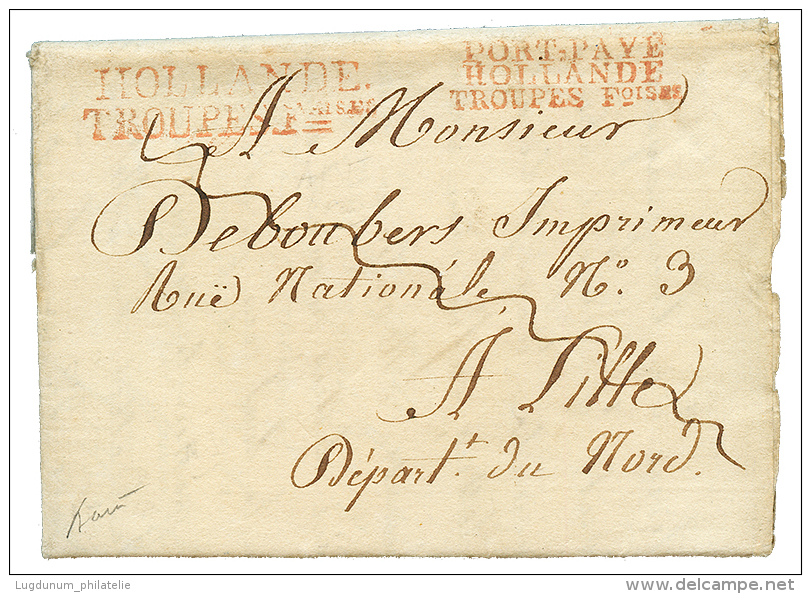 HOLLANDE.
TROUPES F.AISES
PORT-PAYÉ
HOLLANDE
TROUPES FOISES
A Monsieur
Deboubers Imprimeur
Ruë Nationále, No. 3
A Lille
Départ.t du Nord.
Lugdunum_philatelie
www.delcampe.net